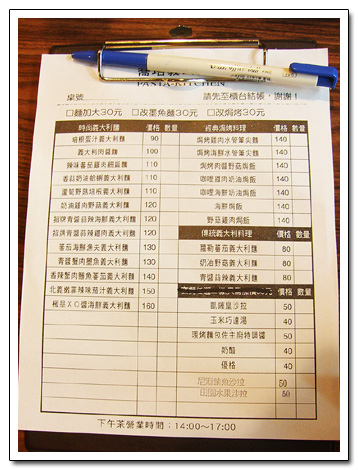 PANTA-KITCHEN
桌號
請先至櫃台結帳，謝謝！
□麵加大30元 □改墨魚麵30元 □改焗烤30元
時尚義大利麵 價格 數量
培根蛋汁義大利麵 90
義大利肉醬麵 100
辣味蕃茄雞肉細扁麵 110
香蒜奶油蛤蜊義大利麵 110
蘆筍野菇培根義大利麵 120
奶油雞肉野菇義大利麵 120
招牌青醬蒜辣海鮮義大利麵 120
招牌青醬蒜辣雞肉義大利麵 120
蕃茄海鮮漁夫義大利麵 130
青醬蟹肉墨魚義大利麵 130
香辣蟹肉鮪魚蕃茄義大利麵 140
北義嫩菲辣味茄汁義大利麵 150
極品XO醬海鮮義大利麵 160
經典焗烤料理 價格 數量
焗烤雞肉水管筆尖麵 140
焗烤海鮮水管筆尖麵 140
焗烤肉醬野菇焗飯 140
咖哩雞肉奶油焗飯 140
咖哩海鮮奶油焗飯 140
海鮮焗飯 140
野菇雞肉焗飯 140
傳統義大利料理 價格 數量
羅勒蕃茄義大利麵 80
奶油野菇義大利麵 80
青醬蒜辣義大利麵 80
價格 數量
凱薩皇沙拉 50
玉米巧達湯 40
現烤麵包佐主廚特調醬 50
奶酪 40
優格 40
尼斯鮪魚沙拉 50
田園水果沙拉 50
下午茶營業時間：14:00～17:00